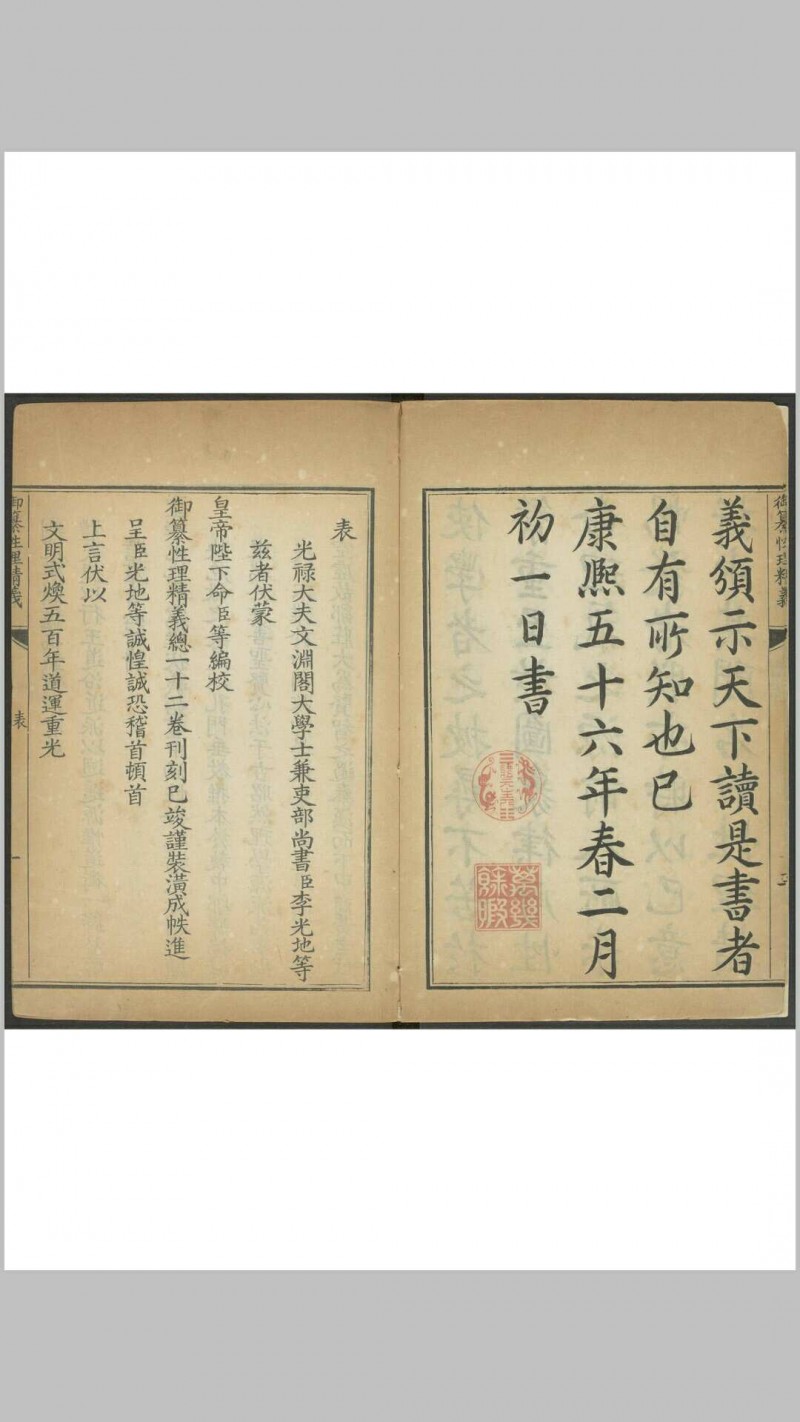 御纂性理精義
義頒示天下讀是書者
自有所知也已
康熙五十六年春二月
初一日書
萬幾餘暇
表
光祿大夫文淵閣大學士兼吏部尚書臣李光地等
兹者伏蒙
皇帝陛下命臣等編校
御纂性理精義總一十二卷刊刻已竣謹裝潢成帙進
呈臣光地等誠惶誠恐稽首頓首
上言伏以
文明式煥五百年道運重光
御纂性理精義
表
一